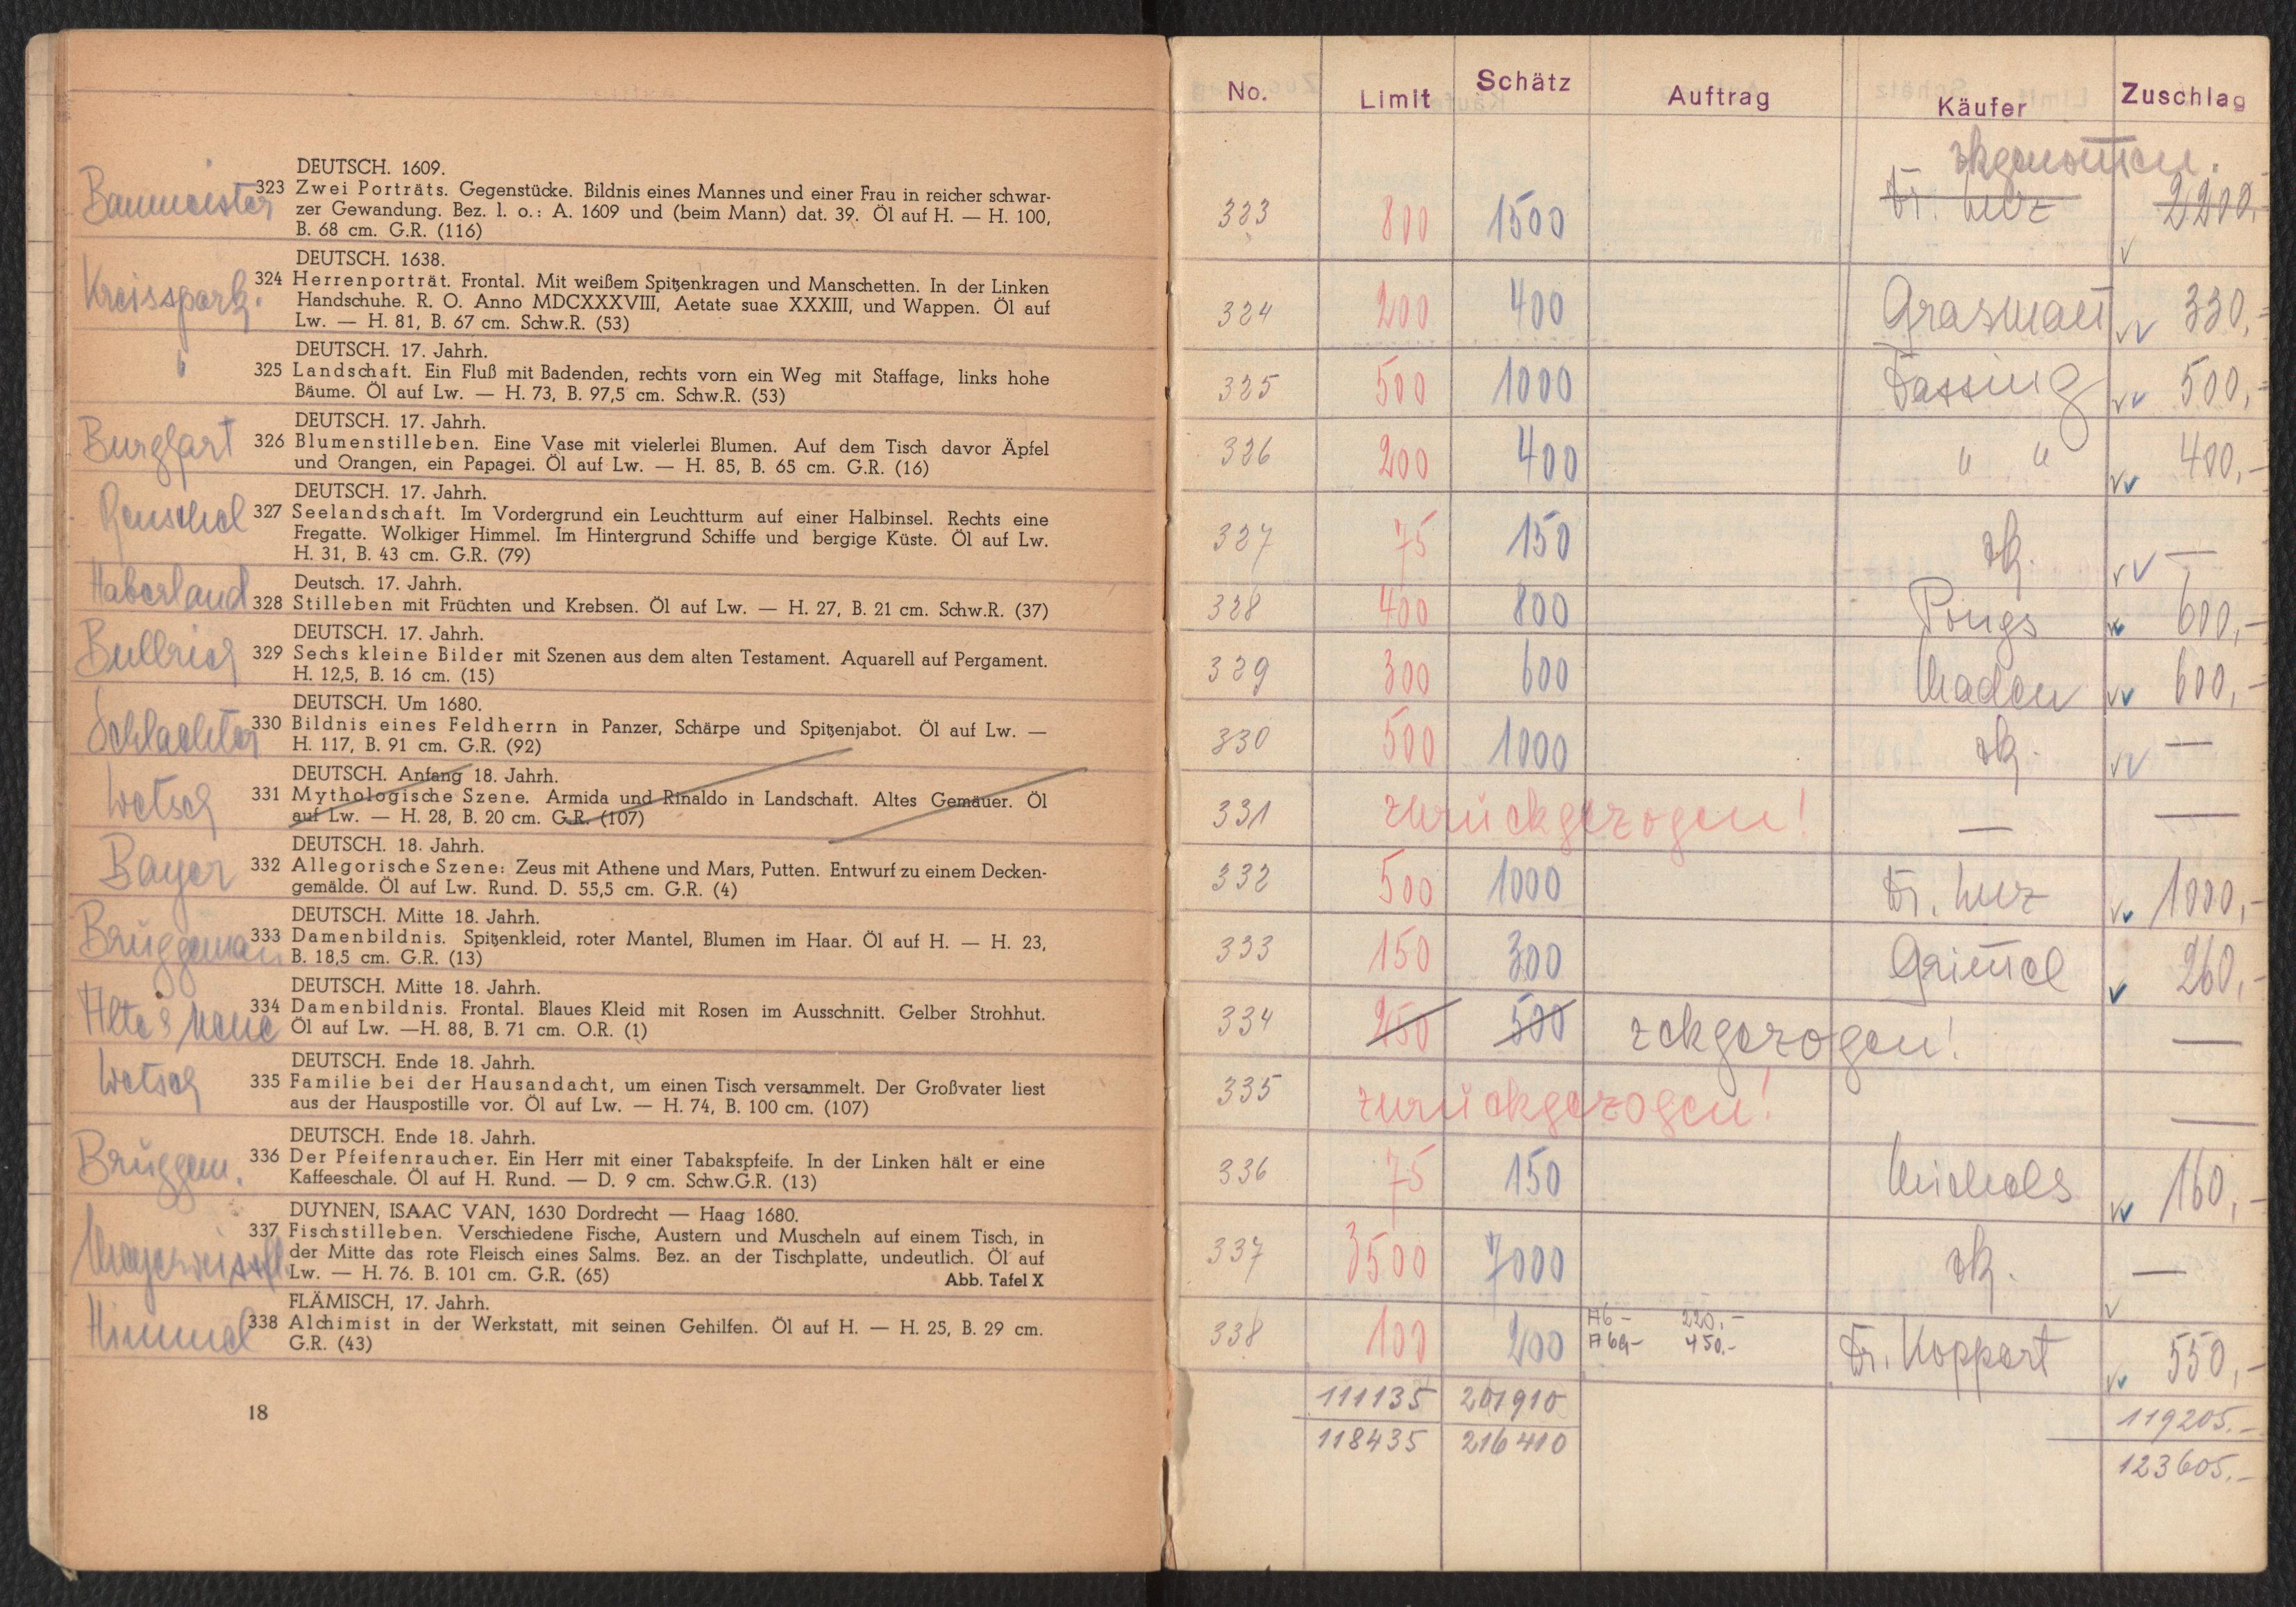 DEUTSCH. 1609.
Baumeister
323 Zwei Porträts. Gegenstücke. Bildnis eines Mannes und einer Frau in reicher schwar-
zer Gewandung. Bez. l. o.: A. 1609 und (beim Mann) dat. 39. Öl auf H. — H. 100,
B. 68 cm. G.R. (116)
DEUTSCH. 1638.
Kreisspark.
324 Herrenporträt. Frontal. Mit weißem Spitzenkragen und Manschetten. In der Linken
Handschuhe. R. O. Anno MDCXXXVIII, Aetate suae XXXIII, und Wappen. Öl auf
Lw. — H. 81, B. 67 cm. Schw.R. (53)
DEUTSCH. 17. Jahrh.
325 Landschaft. Ein Fluß mit Badenden, rechts vorn ein Weg mit Staffage, links hohe
Bäume. Öl auf Lw. — H. 73, B. 97,5 cm. Schw.R. (53)
DEUTSCH. 17. Jahrh.
Burghart
326 Blumenstilleben. Eine Vase mit vielerlei Blumen. Auf dem Tisch davor Äpfel
und Orangen, ein Papagei. Öl auf Lw. — H. 85, B. 65 cm. G.R. (16)
DEUTSCH. 17. Jahrh.
327 Seelandschaft. Im Vordergrund ein Leuchtturm auf einer Halbinsel. Rechts eine
Fregatte. Wolkiger Himmel. Im Hintergrund Schiffe und bergige Küste. Öl auf Lw.
H. 31, B. 43 cm. G.R. (79)
Haberland
Deutsch. 17. Jahrh.
328 Stilleben mit Früchten und Krebsen. Öl auf Lw. — H. 27, B. 21 cm. Schw.R. (37)
DEUTSCH. 17. Jahrh.
Bullrich
329 Sechs kleine Bilder mit Szenen aus dem alten Testament. Aquarell auf Pergament.
H. 12,5, B. 16 cm. (15)
DEUTSCH. Um 1680.
Schlachter
330 Bildnis eines Feldherrn in Panzer, Schärpe und Spitzenjabot. Öl auf Lw. —
H. 117, B. 91 cm. G.R. (92)
DEUTSCH. Anfang 18. Jahrh.
Wetsch
331 Mythologische Szene. Armida und Rinaldo in Landschaft. Altes Gemäuer. Öl
auf Lw. — H. 28, B. 20 cm. G.R. (107)
DEUTSCH. 18. Jahrh.
Bayer
332 Allegorische Szene: Zeus mit Athene und Mars, Putten. Entwurf zu einem Decken-
gemälde. Öl auf Lw. Rund. D. 55,5 cm. G.R. (4)
DEUTSCH. Mitte 18. Jahrh.
Brüggeman
333 Damenbildnis. Spitzenkleid, roter Mantel, Blumen im Haar. Öl auf H. — H. 23,
B. 18,5 cm. G.R. (13)
DEUTSCH. Mitte 18. Jahrh.
Alte & Neue
334 Damenbildnis. Frontal. Blaues Kleid mit Rosen im Ausschnitt. Gelber Strohhut.
Öl auf Lw. —H. 88, B. 71 cm. O.R. (1)
DEUTSCH. Ende 18. Jahrh.
Wetsch
335 Familie bei der Hausandacht, um einen Tisch versammelt. Der Großvater liest
aus der Hauspostille vor. Öl auf Lw. — H. 74, B. 100 cm. (107)
DEUTSCH. Ende 18. Jahrh.
Brüggem.
336 Der Pfeifenraucher. Ein Herr mit einer Tabakspfeife. In der Linken hält er eine
Kaffeeschale. Öl auf H. Rund. — D. 9 cm. Schw.G.R. (13)
DUYNEN, ISAAC VAN, 1630 Dordrecht — Haag 1680.
337 Fischstilleben. Verschiedene Fische, Austern und Muscheln auf einem Tisch, in
der Mitte das rote Fleisch eines Salms. Bez. an der Tischplatte, undeutlich. Öl auf
Lw. — H. 76. B. 101 cm. G.R. (65) Abb. Tafel X
FLÄMISCH, 17. Jahrh.
Himmel
338 Alchimist in der Werkstatt, mit seinen Gehilfen. Öl auf H. — H. 25, B. 29 cm.
G.R. (43)
18
No. Limit Schätz Auftrag Käufer Zuschlag
zkgenommen.
323 800 1500 Dr. Lurz 2200,-
324 200 400 Grasman 330,-
325 500 1000 Dassing 500,-
326 200 400 " " 400,-
327 75 150 zk. —
328 400 800 Pongs 600,-
329 300 600 Maden 600,-
330 500 1000 zk. —
331 zurückgezogen! — —
332 500 1000 Dr. Lurz 1000,-
333 150 300 Grimel 260,-
334 250 500 zckgezogen! —
335 zurückgezogen! —
336 75 150 Michels 160,-
337 3500 7000 zk. —
338 100 200 A6- 220.- Dr. Koppert 550,-
A6a- 450.-
111135 201910 119205.-
118435 216410 123605.-